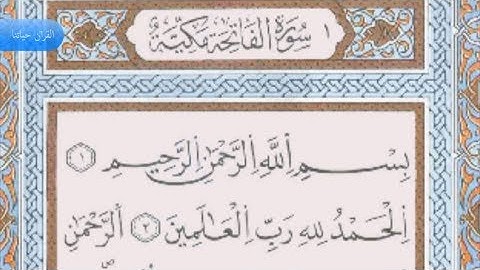 القران حياتنا
١ سُورَةُ الفَاتِحَةِ مَكِّيَّة
بِسْمِ اِللَّهِ اِلرَّحْمَٰنِ اِلرَّحِيمِ ١
اِلْحَمْدُ لِلهِ رَبِّ اِلْعَٰلَمِينَ ٢ اَلرَّحْمَٰنِ